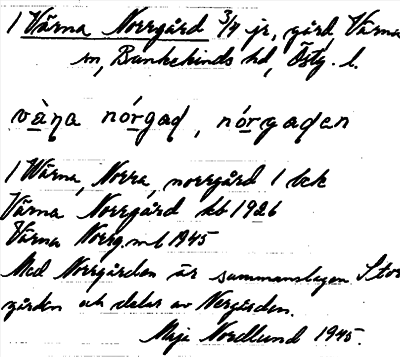 1 Värna Norrgård 3/4 jr, gård Värna
sn, Bankekinds hd, Östg. l.
vàṇa nórgaḍ, nórgaḍen
1 Wärna, Norra, norrgård 1 bck
Värna Norrgård kb 1926
Värna Norrg. mb 1945
Med Norrgården är sammanslagen Stor
gården och delar av Nergården.
Maja Nordlund 1945.